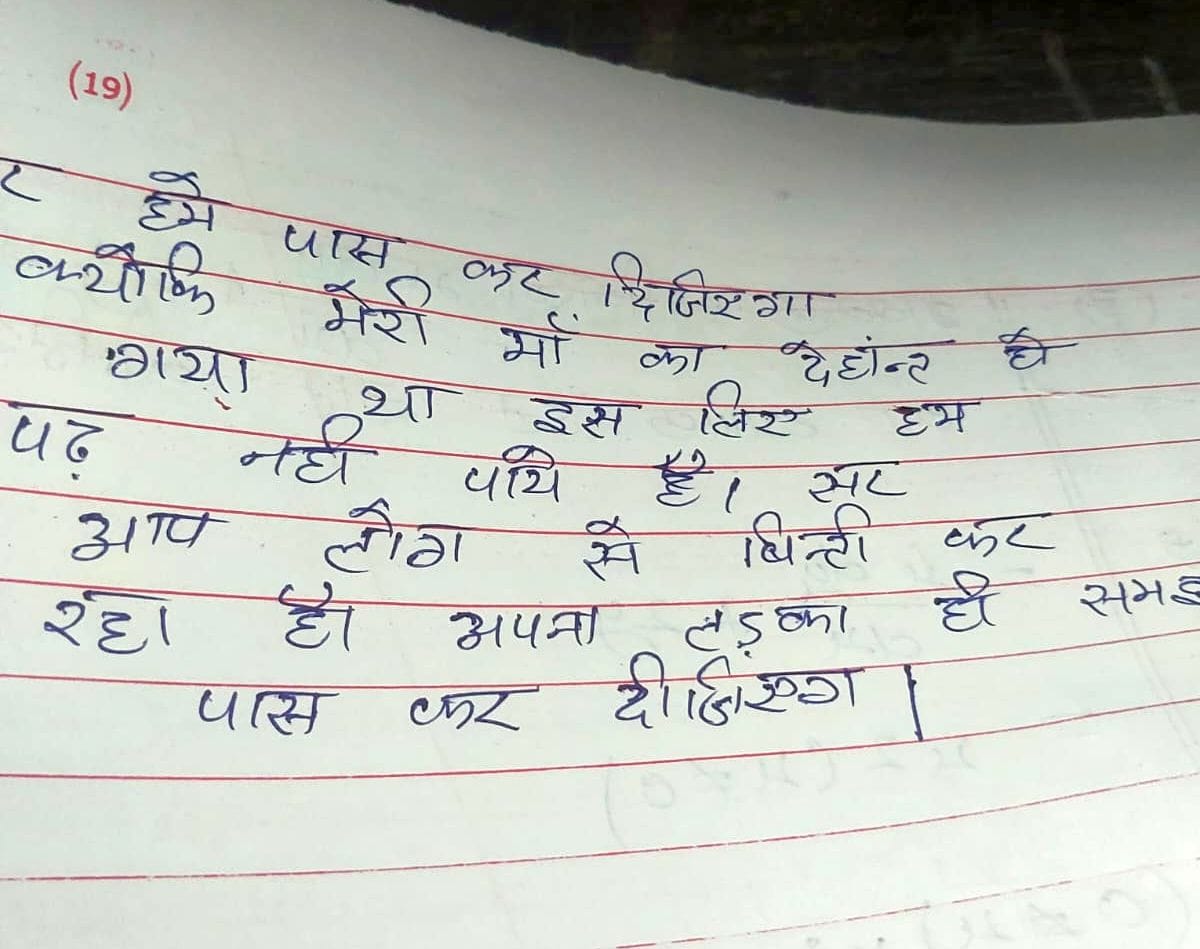 (19)
र हमे पास कर दिजिएगा
क्योकि मेरी माँ का देहांन्त हो
गया था इस लिए हम
पढ़ नही पाये है। सर
आप लोग से बिन्ती कर
रहा है। अपना लड़का ही समझ
पास कर दीजिएगा।